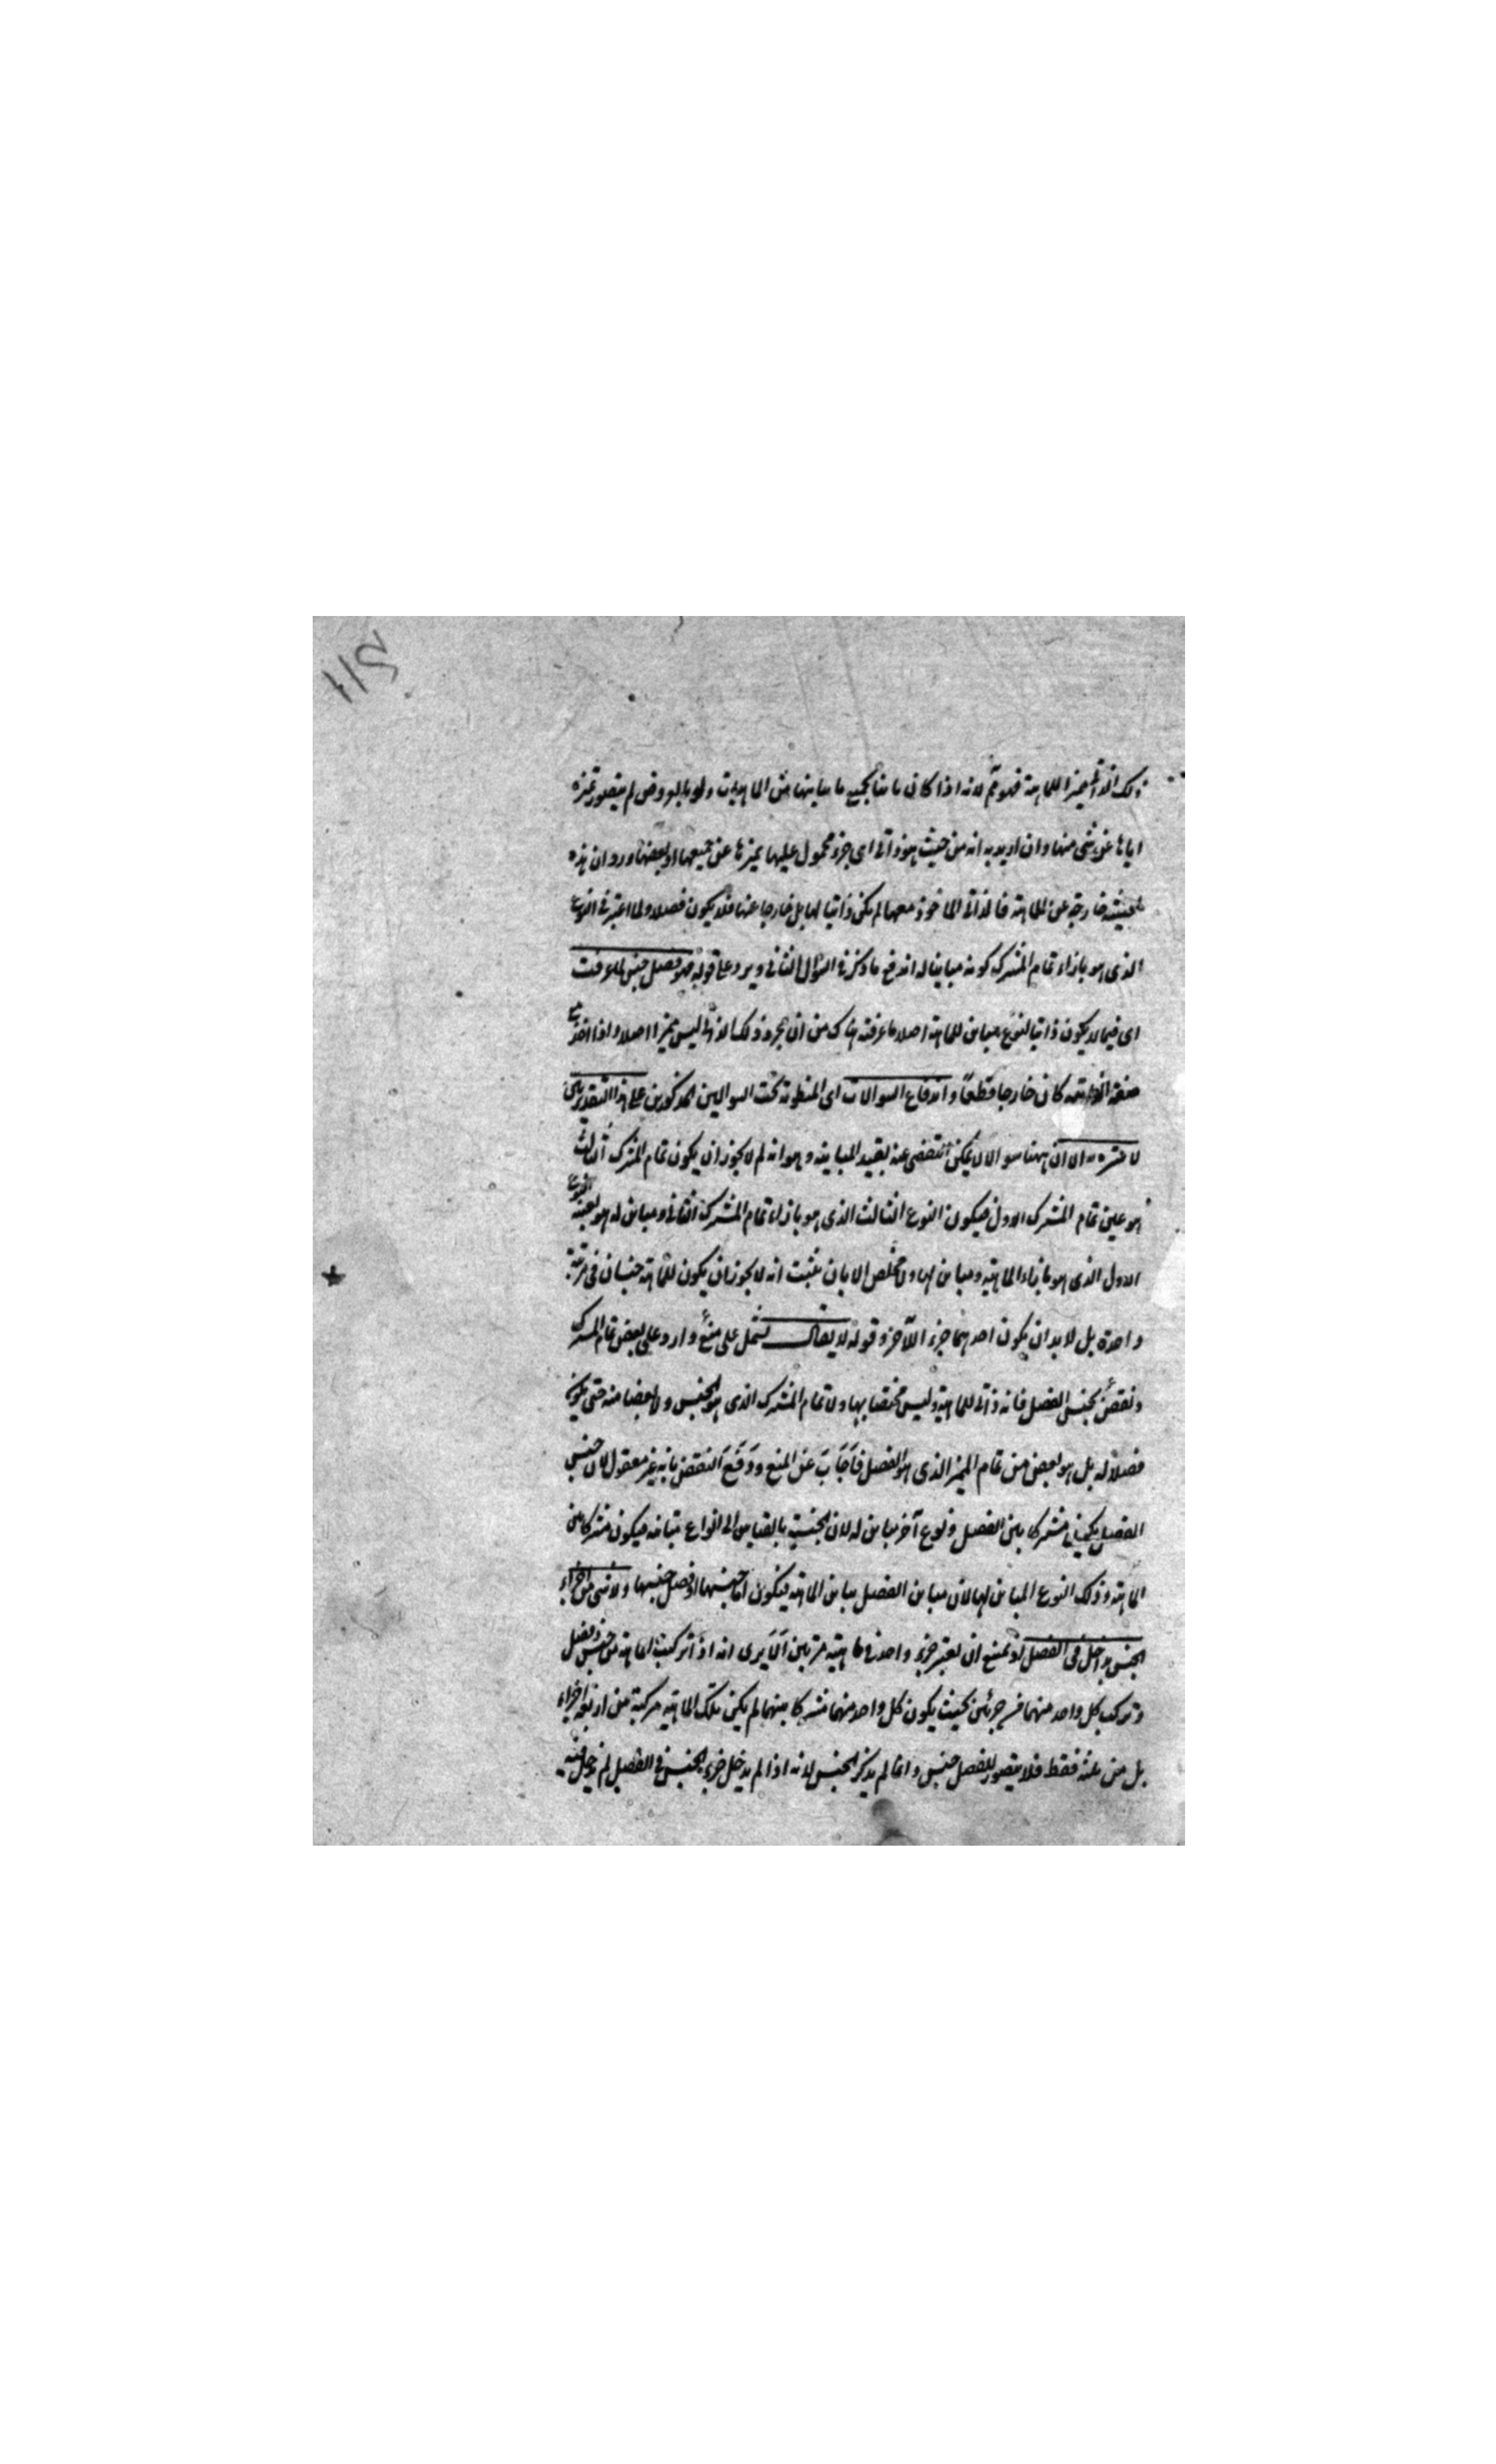 ذلك الذاتى مميزا للماهية فهو ثم لانه اذا كان مباينا لجميع ما يباينها من الماهيات ولو بالفرض لم يتصور تميزه
اياها عن شى منها وان اريد به انه من حيث هو ذاتى اى جزء محمول عليها يميزها عن جميعها او بعضها ورد ان هذه
الحيثية خارجة عن الماهية فالذاتى الماخوذ معها لم يكن ذاتيا لها بل خارجا عنها فلا يكون فصلا ولما اعتبر فى النوع
الذى هو بازاء تمام المشترك كونه مباينا له اندفع ما ذكر فى السؤال الثانى ويرد على قوله فهو فصل جنس لما عرفت
اى فيما لا يكون ذاتيا لنوع مباين للماهية اصلا ما عرفته هناك من ان مجرد ذلك الذاتى ليس مميزا اصلا واذا اخذ مع
صفة كان خارجا قطعا واندفاع السوالات اى المنظومة تحت السوالين المذكورين على هذا التقدير بين
لا سترة به الا ان ههنا سوالا لا يمكن التفصى عنه بقيد المباينة وهو انه لم لا يجوز ان يكون تمام المشترك الثالث
هو عين تمام المشترك الاول فيكون النوع الثالث الذى هو بازاء تمام المشترك الثانى ومباين له هو بعينه النوع
الاول الذى هو بازاء الماهية ومباين لها ولا مخلص الا بان يثبت انه لا يجوز ان يكون للماهية جنسان فى مرتبة
واحدة بل لا بد ان يكون احدهما جزء الآخر وقوله لا يقال يشتمل على منع وارد على بعض تمام المشترك
ونقض بجنس الفصل فانه ذاتى للماهية وليس مختصا بها ولا تمام المشترك الذى هو الجنس ولا بعضا منه حتى يكون
فصلا له بل هو بعض من تمام المميز الذى هو الفصل فاجاب عن المنع ودفع النقض بانه غير معقول لان جنس
الفصل يكون مشتركا بين الفصل ونوع آخر مباين له لان الجنسية بالقياس الى انواع متباينة فيكون مشتركا بين
الماهية وذلك النوع المباين لها لان مباين الفصل مباين الماهية فيكون اما جنسها او فصل جنسها ولا شى من اجزاء
الجنس بداخل فى الفصل لامتناع ان يعتبر جزء واحد فى ماهية مرتين الا يرى انه اذا تركبت الماهية من جنس وفصل
وتركب كل واحد منهما من جزئين بحيث يكون كل واحد منهما مشتركا بينهما لم يكن تلك الماهية مركبة من اربعة اجزاء
بل من ثلثة فقط فلا يتصور للفصل جنس وانما لم يذكر الجنس لانه اذا لم يدخل جزء الجنس فى الفصل لم يدخل فيه